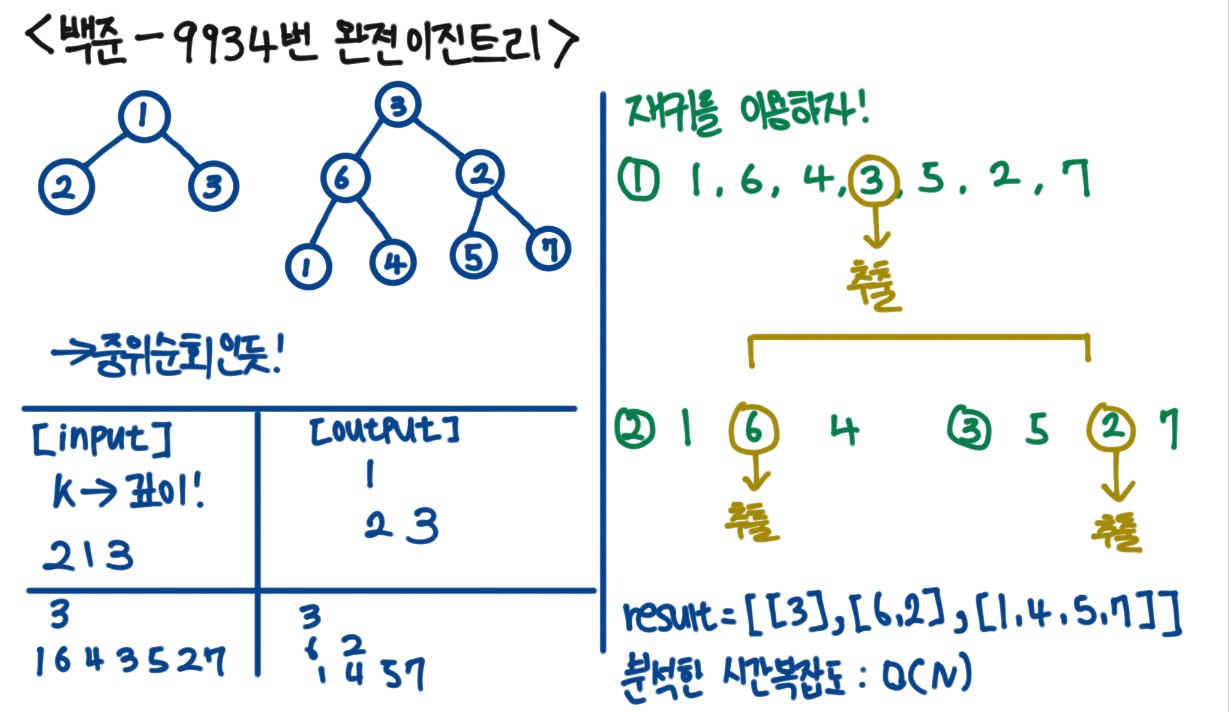 <백준-9934번 완전이진트리>
1
2 3
3
6 2
1 4 5 7
→중위순회인듯!
[input]
K→깊이!
2 1 3
3
1 6 4 3 5 2 7
[output]
1
2 3
3
6 2
1 4 5 7
재귀를 이용하자!
① 1, 6, 4, 3, 5, 2, 7
추출
② 1 6 4 ③ 5 2 7
추출 추출
result=[[3],[6,2],[1,4,5,7]]
분석한 시간복잡도 : O(N)